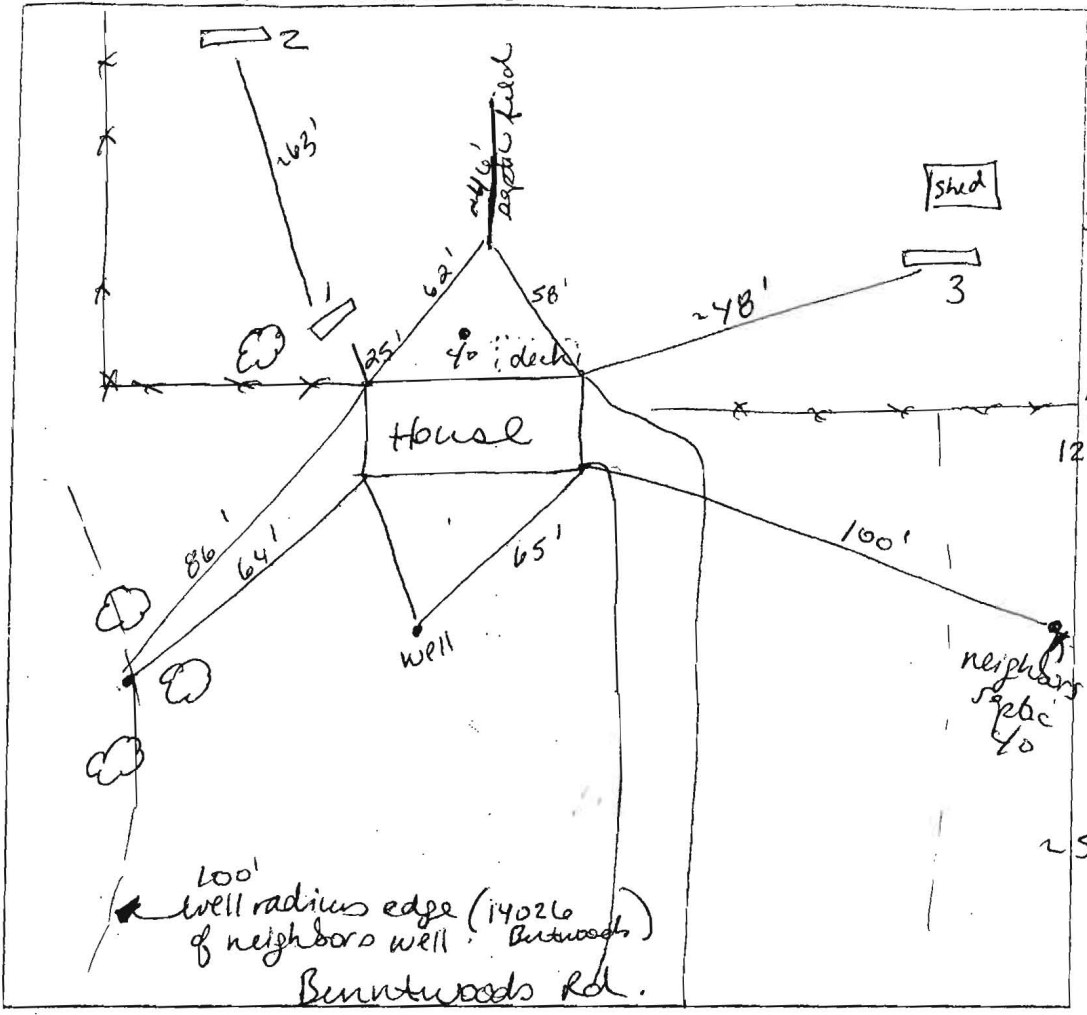 2
~63'
septic field
~46'
shed
62'
58'
1
3
~48'
25'
deck
House
12
86'
64'
65'
100'
well
neighbors
septic
~5
100'
well radius edge (14026
of neighbors well
Burntwoods Rd.